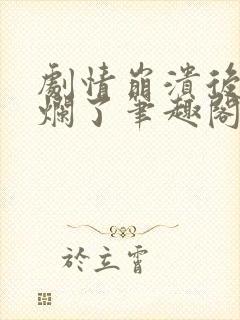 劇情崩潰後
爛了筆趣閣
於立霄